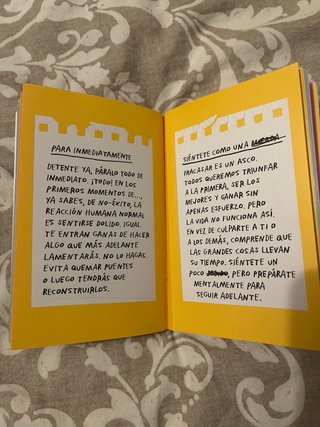 PARA INMEDIATAMENTE
DETENTE YA, PÁRALO TODO DE
INMEDIATO. ¡TODO! EN LOS
PRIMEROS MOMENTOS DE...,
YA SABES, DE NO-ÉXITO, LA
REACCIÓN HUMANA NORMAL
ES SENTIRSE DOLIDO. IGUAL
TE ENTRAN GANAS DE HACER
ALGO QUE MÁS ADELANTE
LAMENTARÁS. NO LO HAGAS.
EVITA QUEMAR PUENTES
O LUEGO TENDRÁS QUE
RECONSTRUIRLOS.
SIÉNTETE COMO UNA
FRACASAR ES UN ASCO.
TODOS QUEREMOS TRIUNFAR
A LA PRIMERA, SER LOS
MEJORES Y GANAR SIN
APENAS ESFUERZO. PERO
LA VIDA NO FUNCIONA ASÍ.
EN VEZ DE CULPARTE A TI O
A LOS DEMÁS, COMPRENDE QUE
LAS GRANDES COSAS LLEVAN
SU TIEMPO. SIÉNTETE UN
POCO , PERO PREPÁRATE
MENTALMENTE PARA
SEGUIR ADELANTE.